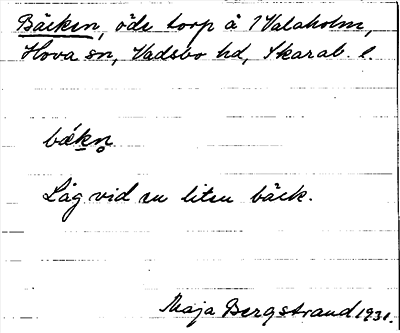 Bäcken, öde torp å 1 Valaholm,
Hova sn, Vadsbo hd, Skarab. l.
bäkn̥
Låg vid en liten bäck.
Maja Bergstrand 1931.